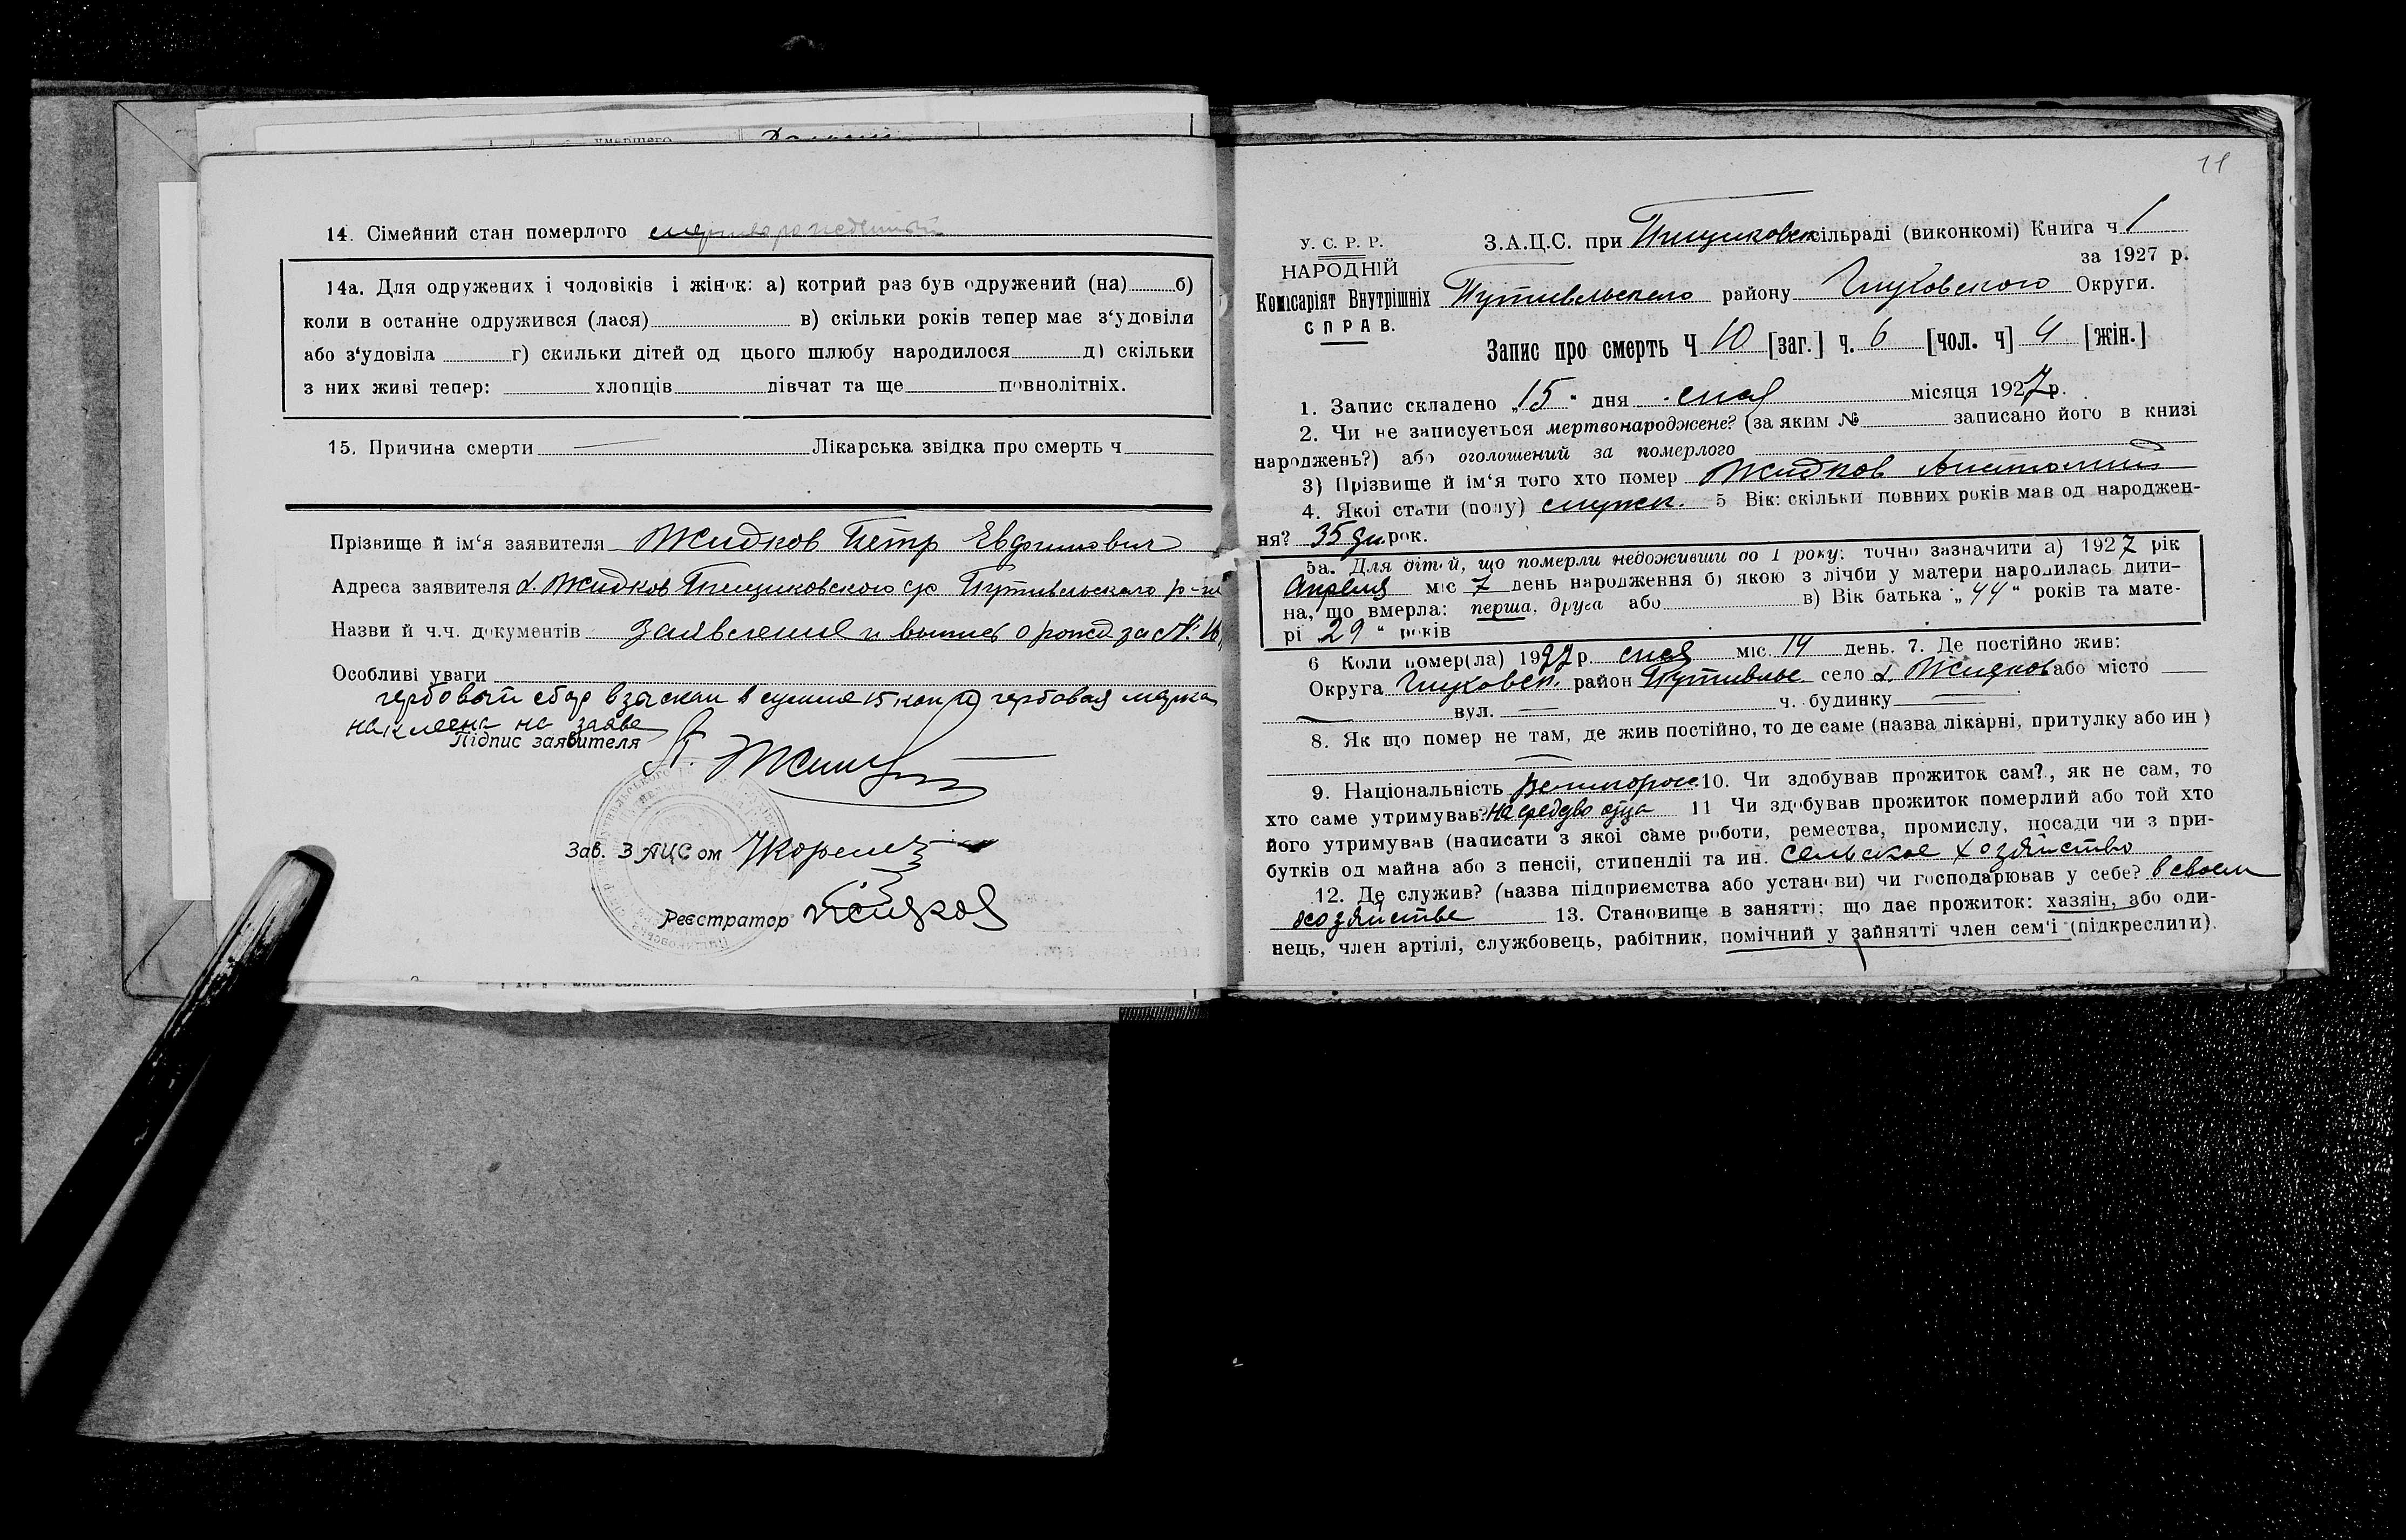 14. Сімейний стан померлого мертворожденный
14а. Для одружених і чоловіків і жінок: а) котрий раз був одружений (на) б)
коли в останне одружився (лася) в) скільки років тепер має з‘удовіли
або з‘удовіла г) скильки дітей од цього шлюбу народилося д) скільки
з них живі тепер: хлопців дівчат та ще повнолітніх.
15. Причина смерти — Лікарська звідка про смерть ч
Прізвище й ім‘я заявителя Жидков Петр Евфимович
Адреса заявителя х. Жидков Пищиковского с/с Путивльского р-на
Назви й ч.ч. документів заявление и выпись о рожд за №
Особливі уваги
гербовый сбор взыскан в сумме 15 коп гербовая марка
наклеена на заяве
Підпис заявителя П. Жид
Зав. ЗАЦСом
Реєстратор Жидков
11
У. С. Р. Р.
НАРОДНІЙ
Комісаріят Внутрішніх
СПРАВ.
З.А.Ц.С. при Пищиковск сільраді (виконкомі) Книга ч 1
за 1927 р.
Путивльского району Глуховского Округи.
Запис про смерть Ч 10 [заг.] ч. 6 [чол. ч] 4 [жін.]
1. Запис складено „15“ дня мая місяця 1927 р.
2. Чи не записується мертвонароджене? (за яким № записано його в книзі
народжень?) або оголошений за померлого
3) Прізвище й ім‘я того хто помер Жидков Анатолий
4. Якої стати (полу) мужск. 5 Вік: скільки повних років мав од народжен-
ня? 35 дн рок.
5а. Для дітей, що померли недоживши до 1 року: точно зазначити а) 1927 рік
Апреля міс 7 день народження б) якою з лічби у матери народилась дити-
на, що вмерла: перша, друга або в) Вік батька „44“ років та мате-
рі 29 “ років
6 Коли помер(ла) 1927 р. мая міс. 14 день. 7. Де постійно жив:
Округа Глуховск. район Путивльс село х. Жидков або місто —
— вул. — ч. будинку —
8. Як що помер не там, де жив постійно, то де саме (назва лікарні, притулку або ин)
9. Національність Великоросс 10. Чи здобував прожиток сам?, як не сам, то
хто саме утримував? На средсво отца 11 Чи здобував прожиток померлий або той хто
його утримував (написати з якої саме роботи, ремества, промислу, посади чи з при-
бутків од майна або з пенсії, стипендії та ин. Сельское хозяйство
12. Де служив? (назва підприємства або установи) чи господарював у себе? в своем
хозяйстве 13. Становище в занятті; що дає прожиток: хазяін, або оди-
нець, член артілі, службовець, рабітник, помічний у зайнятті член сем‘ї (підкреслити).